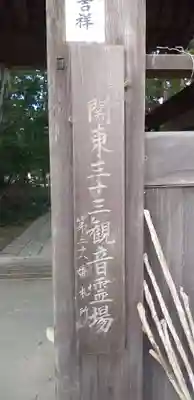 吉祥
関東三十三観音霊場
第三十八番札所